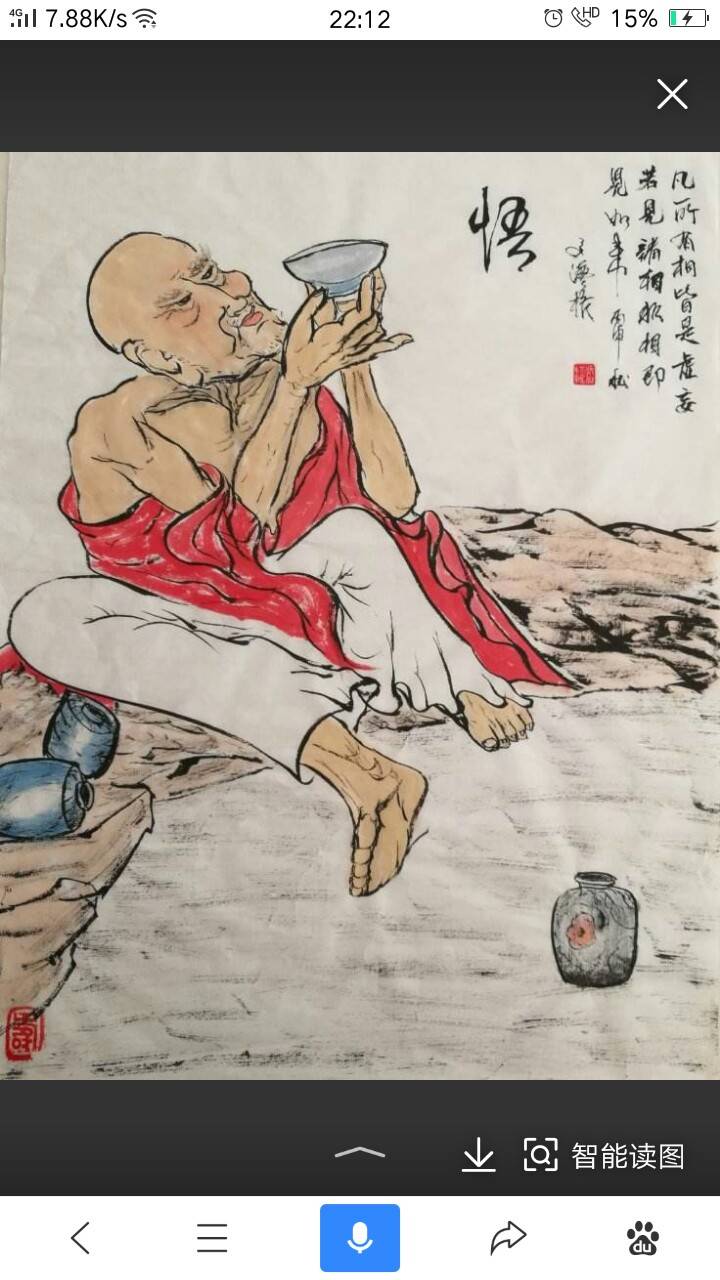 4G 7.88K/s
22:12
HD 15%
悟
凡所有相皆是虚妄
若见诸相非相即
见如来 丙申
智能读图
du